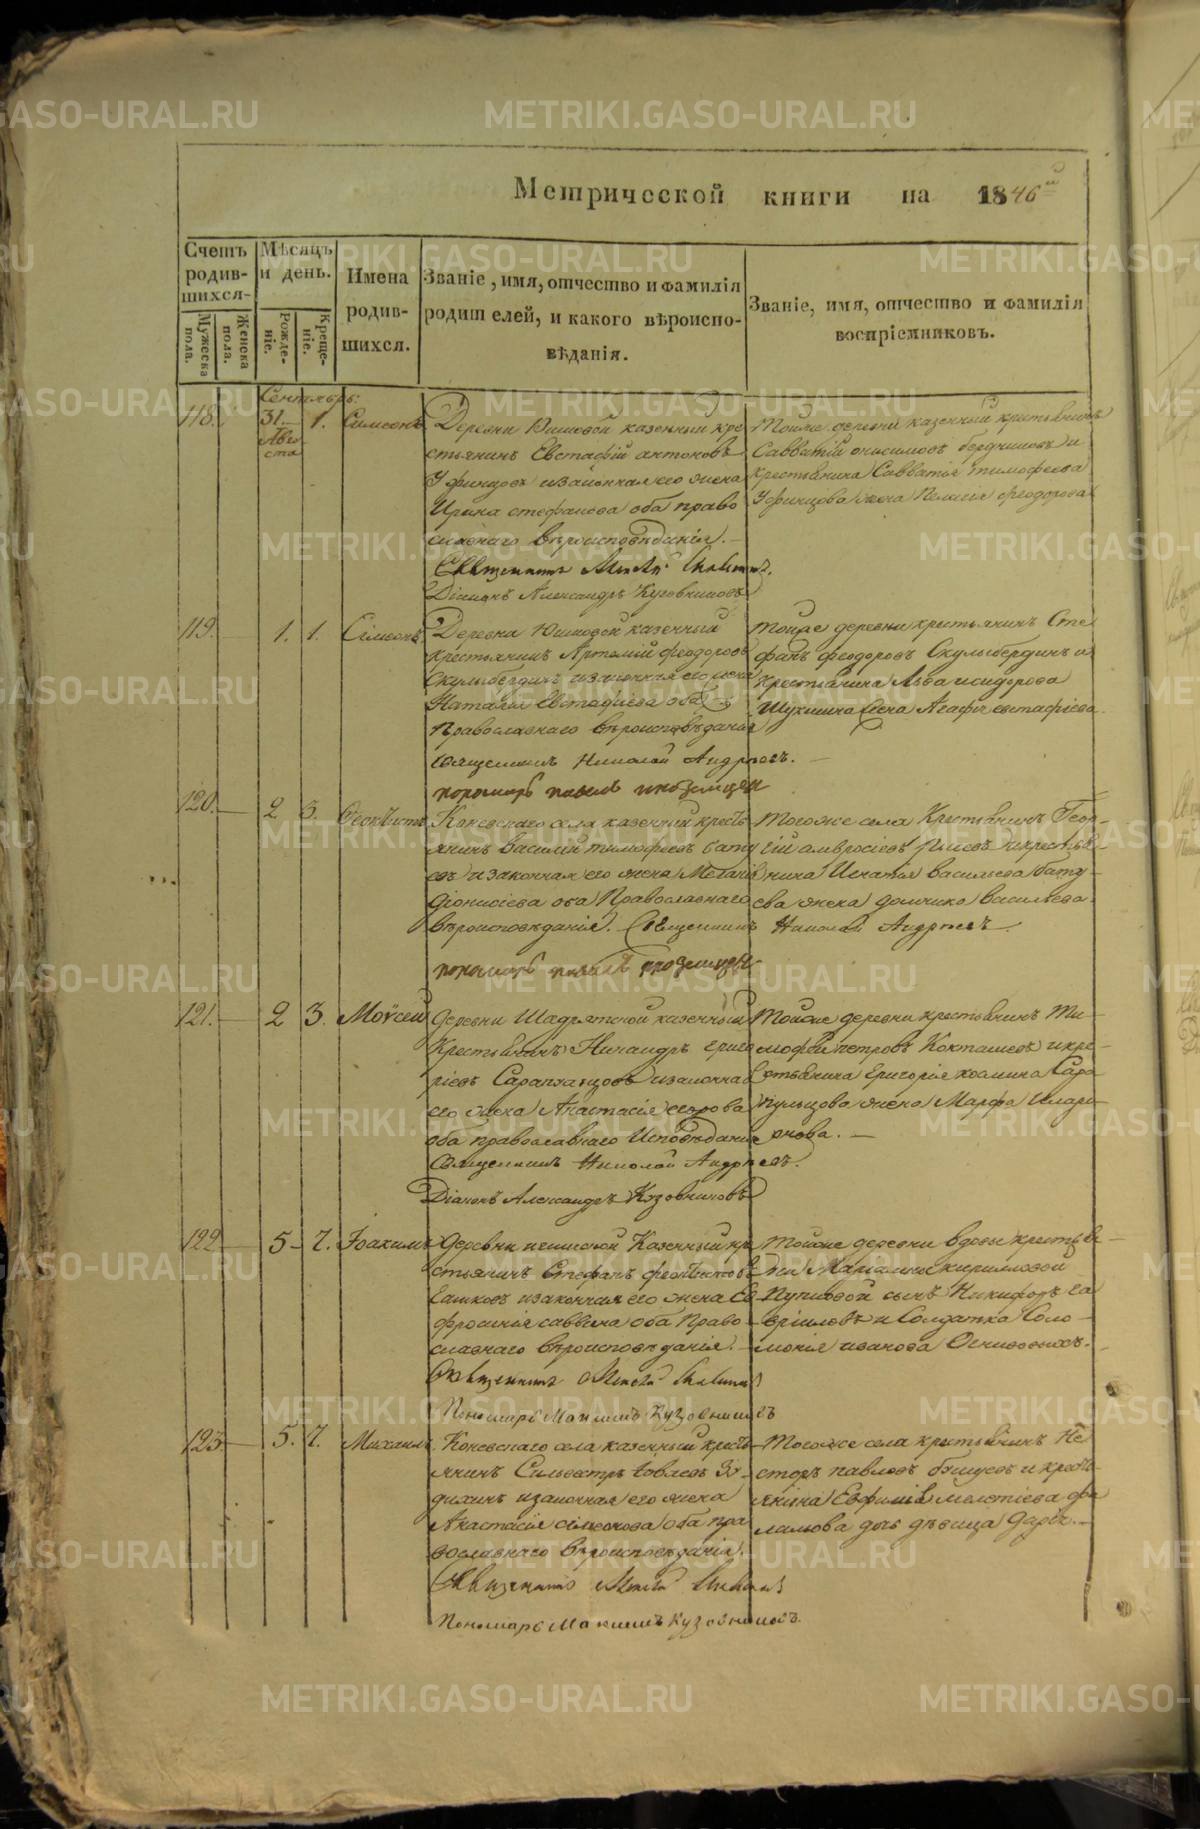 Метрической книги на 1846й
Счетъ родив-шихся.
Мѣсяцъ и день.
Имена родив-шихся.
Званіе, имя, отчество и фамилія родителей, и какого вѣроиспо-вѣданія.
Званіе, имя, отчество и фамилія воспріемниковъ.
Мужеска пола.
Женска пола.
Рожде-ніе.
Креще-ніе.
Сентябрь:
118. 31. Августа 1. Симеонъ
Деревни казенный кре
стьянинъ Евстафій антоновъ
и законная его жена
Ирина стефанова оба право
славнаго вѣроисповѣданія.
Священникъ
Діаконъ Александръ Кузовниковъ
Тойже деревни казенный крестьянинъ
Савватій онисимовъ и
крестьянина Савватія тимофеева
жена Пелагія феодорова
119. 1. 1. Сімеонъ
Деревни казенный
крестьянинъ Артемій феодоровъ
и законная его жена
Наталія Евстафіева оба
Православнаго вѣроисповѣданія
Священникъ Николай Андреевъ.
пономарь павелъ иноземцевъ
Тойже деревни крестьянинъ Сте
фанъ феодоровъ и
крестьянина Льва исидорова
жена Агафія евстафіева
120. 2 3. Феоктистъ
Коневскаго села казенный кресть
янинъ василій тимофеевъ бату
евъ и законная его жена
діонисіева оба Православнаго
вѣроисповѣданія. Священникъ Николай Андреевъ
пономарь павелъ иноземцевъ
Тогоже села Крестьянинъ Геор-
гій амвросіевъ и крестья
нина Игнатія васильева бату-
ева жена домника васильева.
121. 2 3. Моѵсей
деревни казенный
Крестьянинъ Никандръ григо
ріевъ Сарапульцовъ и законная
его жена Анастасія егорова
оба православнаго Исповѣданія
Священникъ Николай Андреевъ.
Діаконъ Александръ Кузовниковъ
Тойже деревни крестьянинъ Ти-
мофей петровъ и кре-
стьянина григорія козмина Сара
пульцова жена Марфа Иларі-
онова.
122 5 7. Іоакимъ
Деревни Казенный кре
стьянинъ Стефанъ феоктистовъ
и законная его жена Ев
фросинія саввина оба Право
славнаго вѣроисповѣданія.
Священникъ
Пономарь Максимъ Кузовниковъ
Тойже деревни вдовы крестья
нки кириловой
сынъ Никифоръ га
вріиловъ и Солдатка Соло-
монія иванова
123 5. 7. Михаилъ
Коневскаго села казенный кресть
янинъ Сильвестръ
и законная его жена
Анастасія сімеонова оба пра
вославнаго вѣроисповѣданія.
Священникъ
Пономарь Максимъ Кузовниковъ.
Тогоже села крестьянинъ Не
сторъ павловъ и кресть-
янина Евфимія мелетіева
дочь дѣвица дарія.